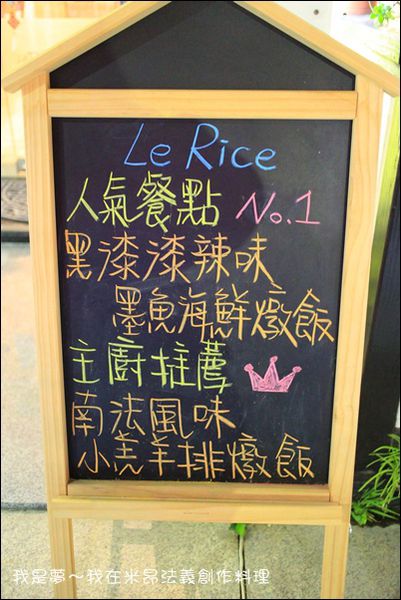 Le Rice
人氣餐點 No.1
黑漆漆辣味
墨魚海鮮燉飯
主廚推薦
南法風味
小羔羊排燉飯
我是夢～我在米昂法義創作料理